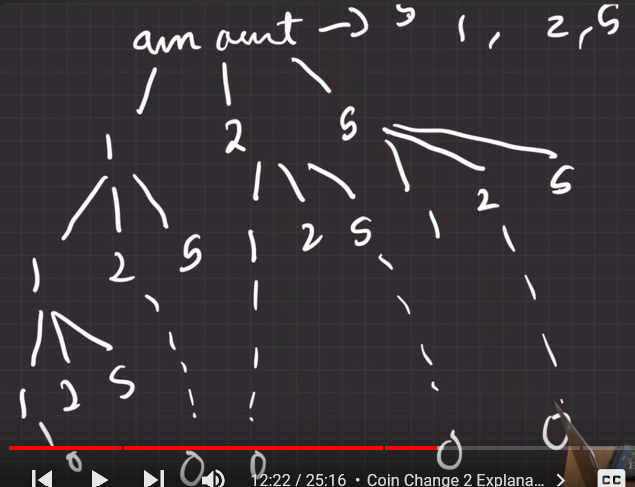 amount → 5 1, 2, 5
1 2 5
1 2 5
1 2 5 1 2 5
1 2 5
0 0 0 0 0
12:22 / 25:16 • Coin Change 2 Explana... >
CC